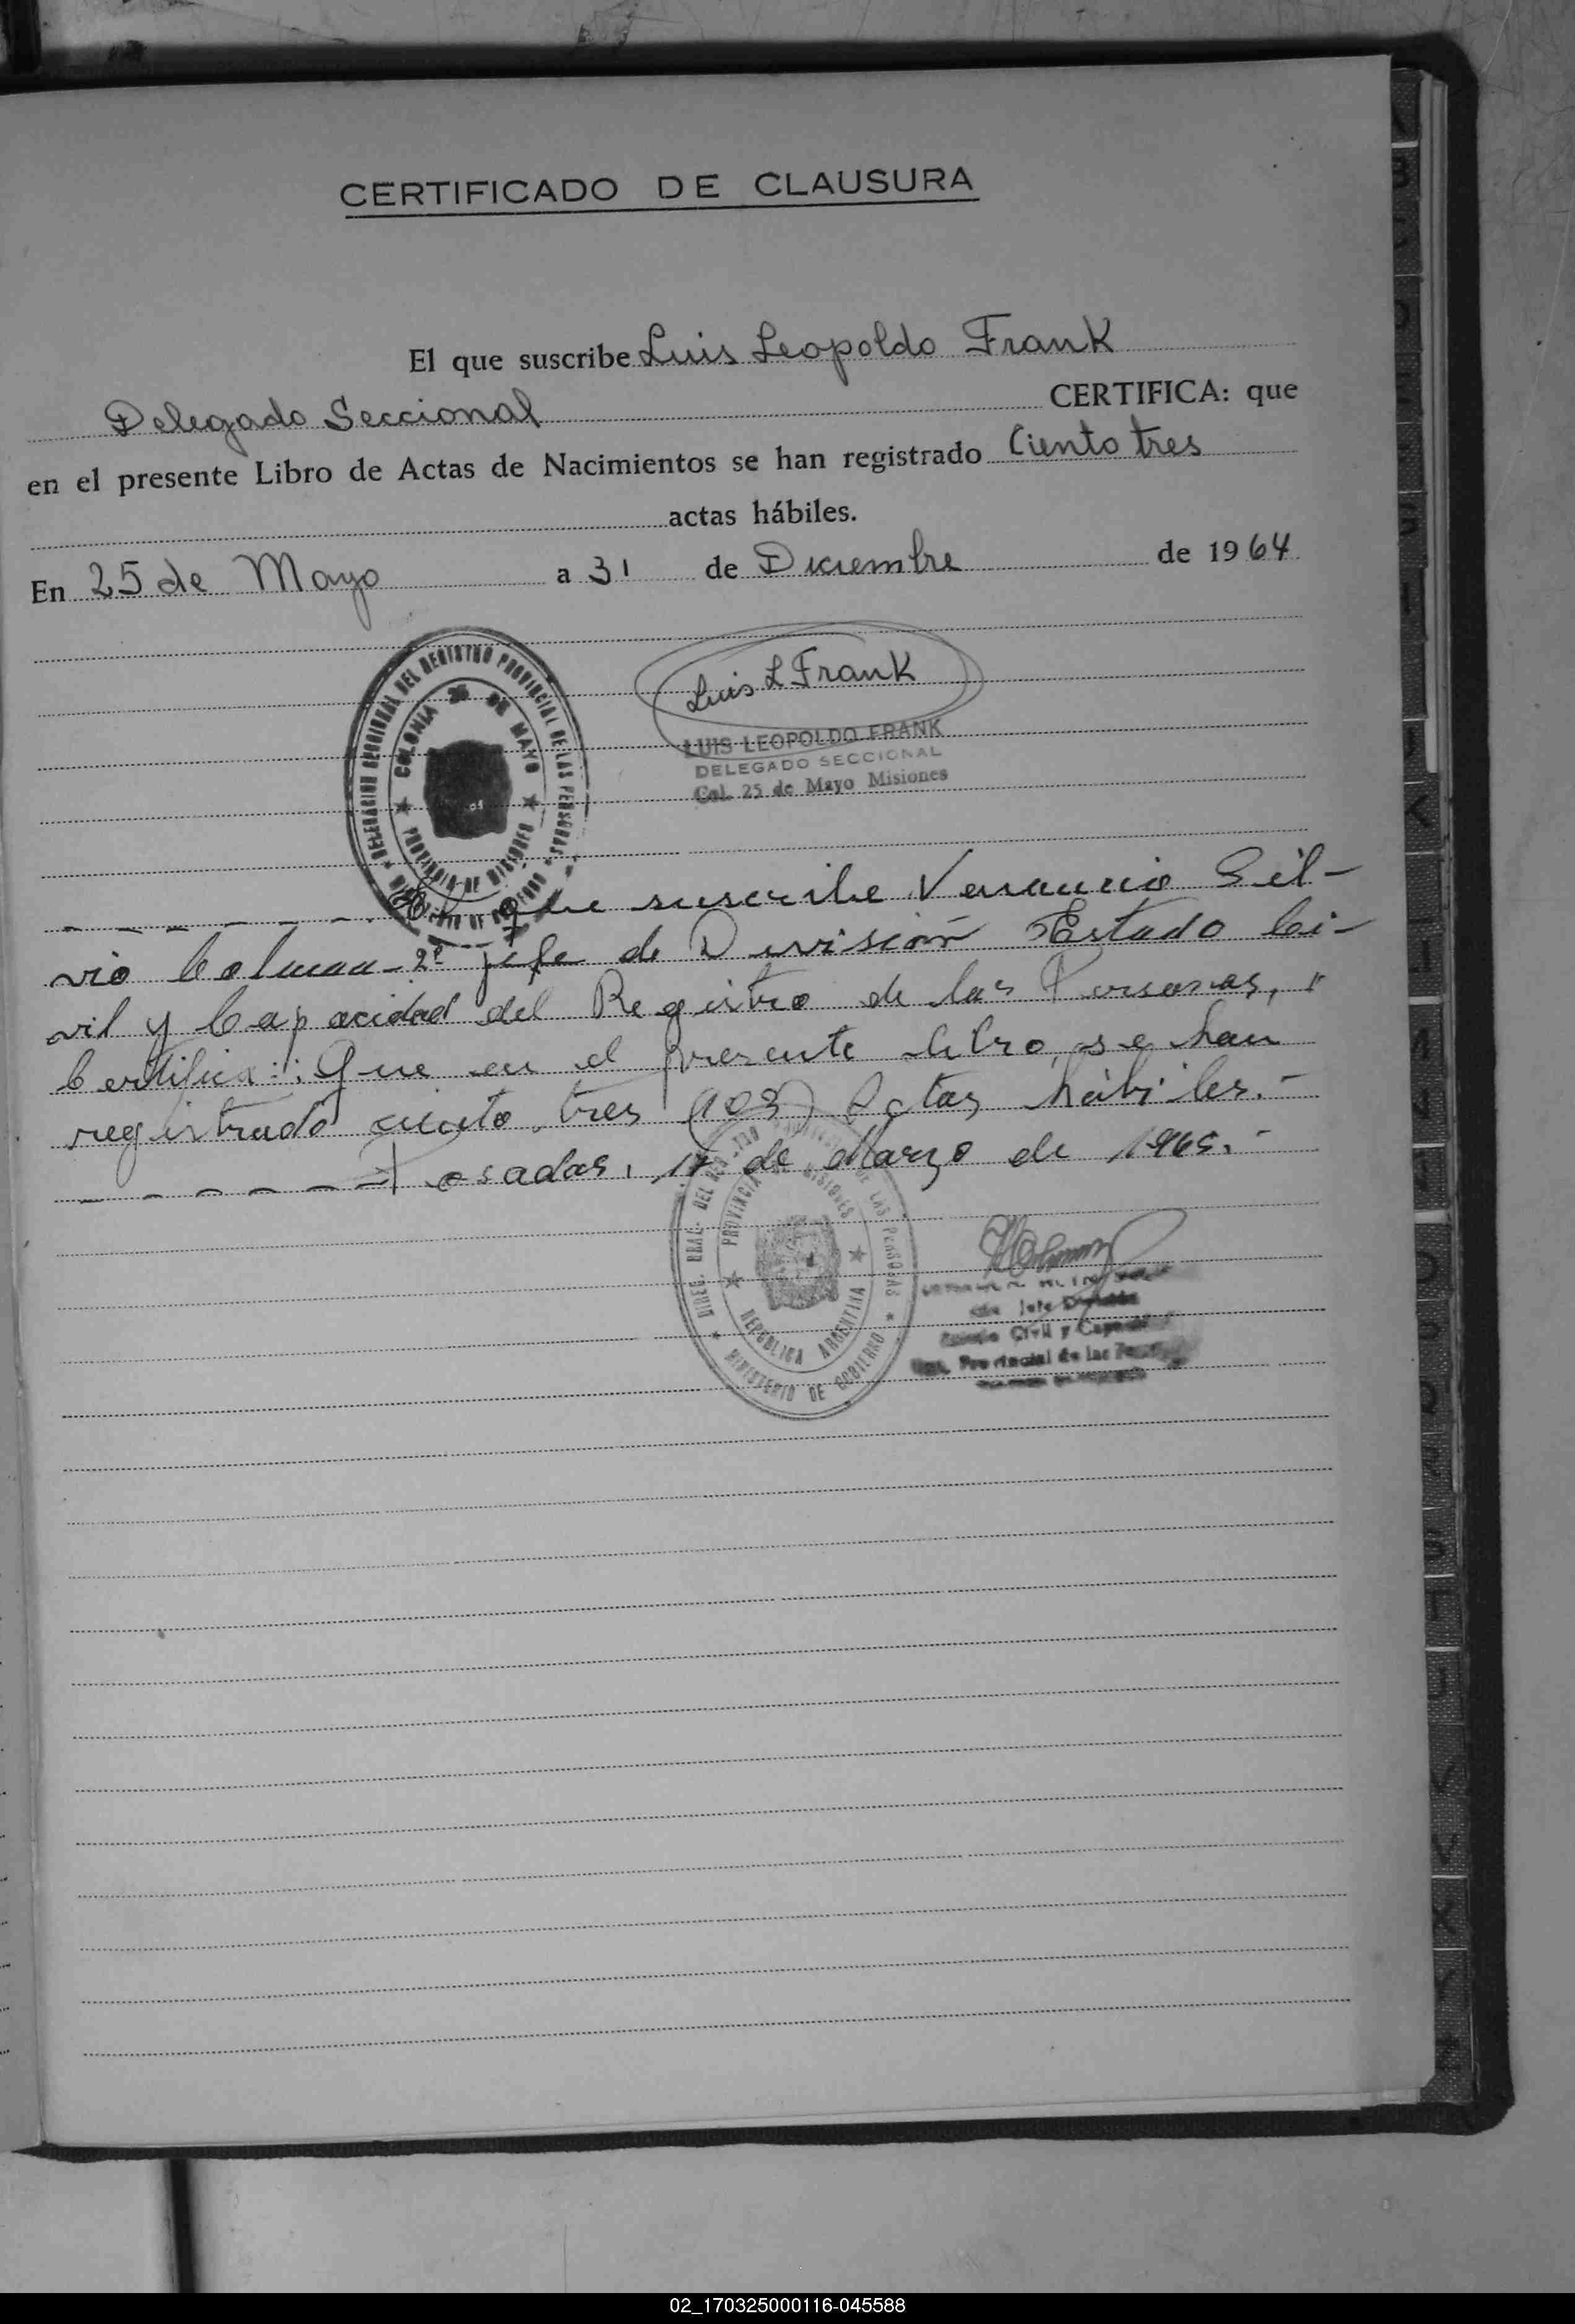 CERTIFICADO DE CLAUSURA
El que suscribe Luis Leopoldo Frank
Delegado Seccional CERTIFICA: que
en el presente Libro de Actas de Nacimientos se han registrado Ciento tres
actas hábiles.
En 25 de Mayo a 31 de Diciembre de 1964
DELEGACION SECCIONAL DEL REGISTRO PROVINCIAL DE LAS PERSONAS
COLONIA 25 DE MAYO
PROVINCIA DE MISIONES
Luis L Frank
LUIS LEOPOLDO FRANK
DELEGADO SECCIONAL
Col. 25 de Mayo Misiones
El que suscribe Venancio Sil-
vio Colman - 2º jefe de División Estado Ci-
vil y Capacidad del Registro de las Personas,
Certifica: Que en el presente libro, se han
registrado ciento tres (103) Actas hábiles.-
Posadas, 17 de Marzo de 1965.-
DE LAS PERSONAS
PROVINCIA DE MISIONES
REPUBLICA ARGENTINA
MINISTERIO DE GOBIERNO
Jefe División
Civil y
Provincial de las
02_170325000116-045588